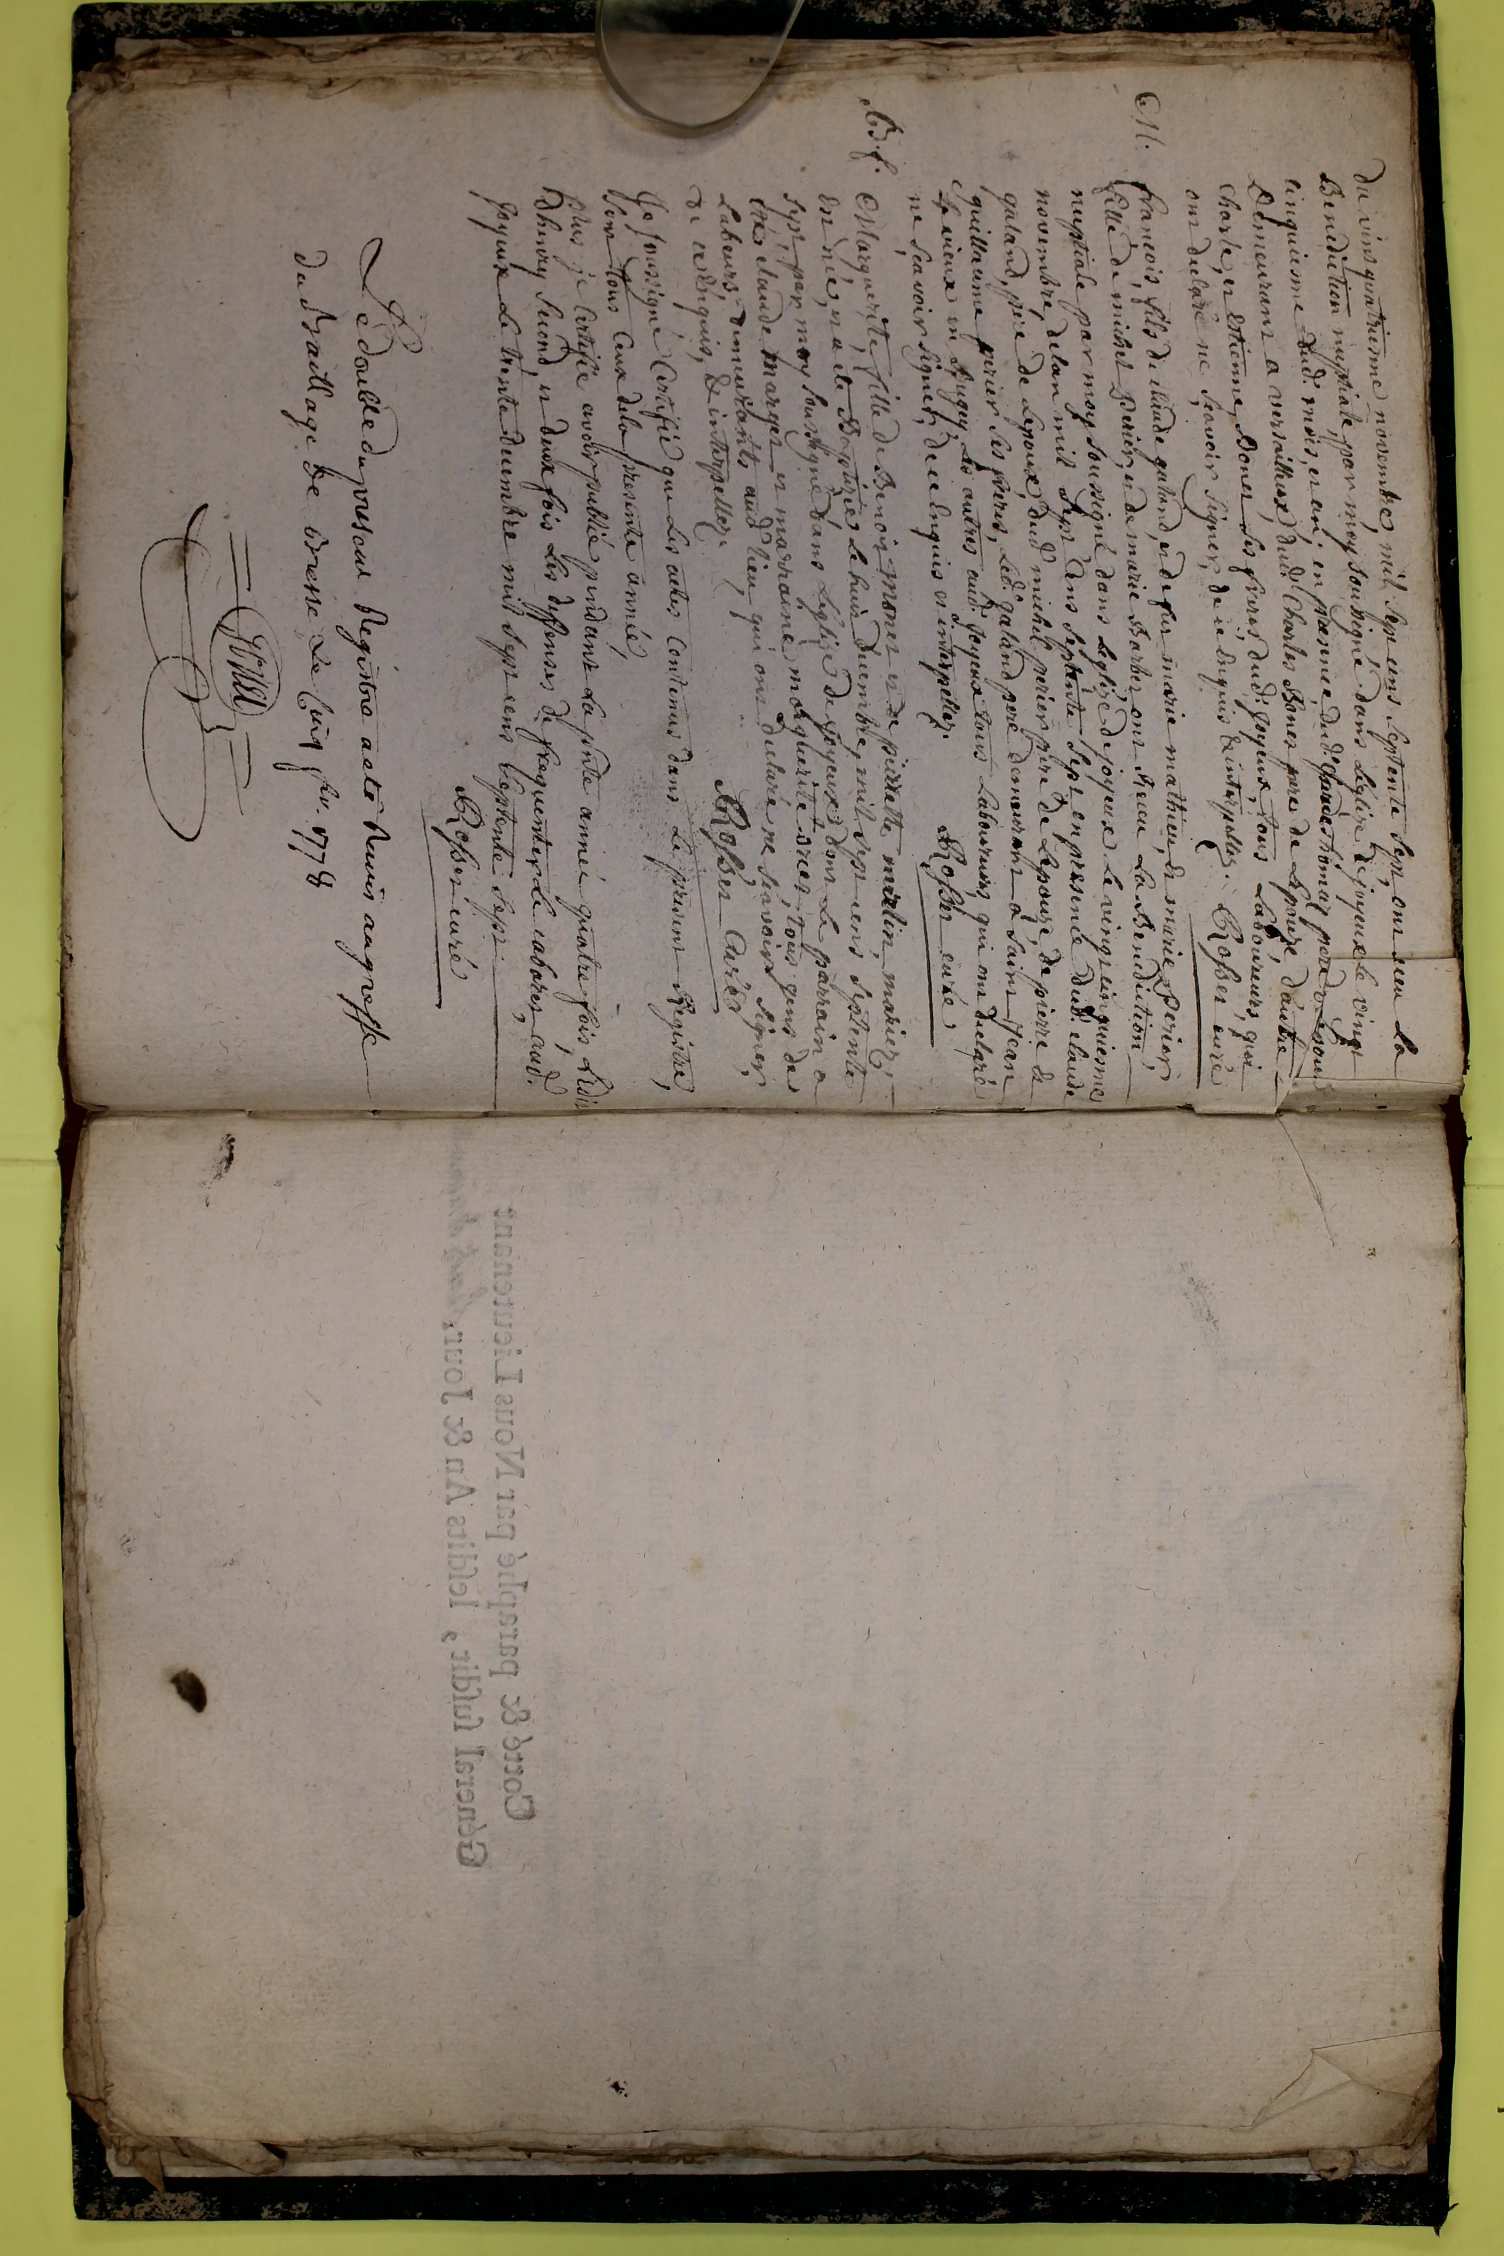 du vingt quatrieme novembre, mil sept cens septente sept ont reçu la
Benediction nuptiale par moy soussigné dans Leglise de joyeux le vingt
cinquieme dud. mois, et an, en presence dud. pere de
Demeurant a versailleux, dud. Charles Bonet pere de Lepouse, d'autre
Charle, et Etienne Bonet ses freres, dud. joyeux, tous Laboureurs, qui
ont declaré ne scavoir signer, de ce Enquis & interpellez. Rosset curé
M.
francois, fils de claude galand, et de fut marie mathieu, & marie Perier
fille de michel Perier, et de marie Barbet ont Recu La Benediction
nuptiale par moy soussigné dans Leglise de joyeux Le vingt cinquieme
novembre, de lan mil sept cens septente sept en presence dud. claude
galand, pere de Lepoux, dud. michel perier pere de Lepouse, de pierre &
guillaume perier ses freres, led. galand pere demeurant a saint jean
le vieux en Bugey, les autres aud. joyeux tous Laboureurs, qui ont declaré
ne scavoir signer, de ce Enquis et interpellez. Rosset curé
B. f.
Marguerite, fille de Benoit monet et de pierrette merlin, mariez,
est née, et a ete Baptizée le huit decembre, mil sept cens septente
sept par moy soussigné dans Leglise de joyeux, dont Le parrain a
été claude marget et marraine marguerite, tous gens de
Labeurs demeurants aud. lieu qui ont declaré ne scavoir signer,
de ce Enquis, & interpellez. Rosset Curé
Je soussigné Certifie que Les actes Contenus dans Le present Registre,
sont tous Ceux de la presente année,
plus je Certifie avoir publié pendant La pnte année quatre fois, Ledit
d'henry second, et deux fois Les deffenses de frequenter Le cabaret, aud.
joyeux Le trente decembre mil sept cens septente sept.
Rosset curé
Le double du present Registre a eté Remis au greffe
du Baillage de Bresse Le Cinq fev. 1778
Cotté & paraphé par Nous Lieutenant
Général susdit, lesdits An & Jour,